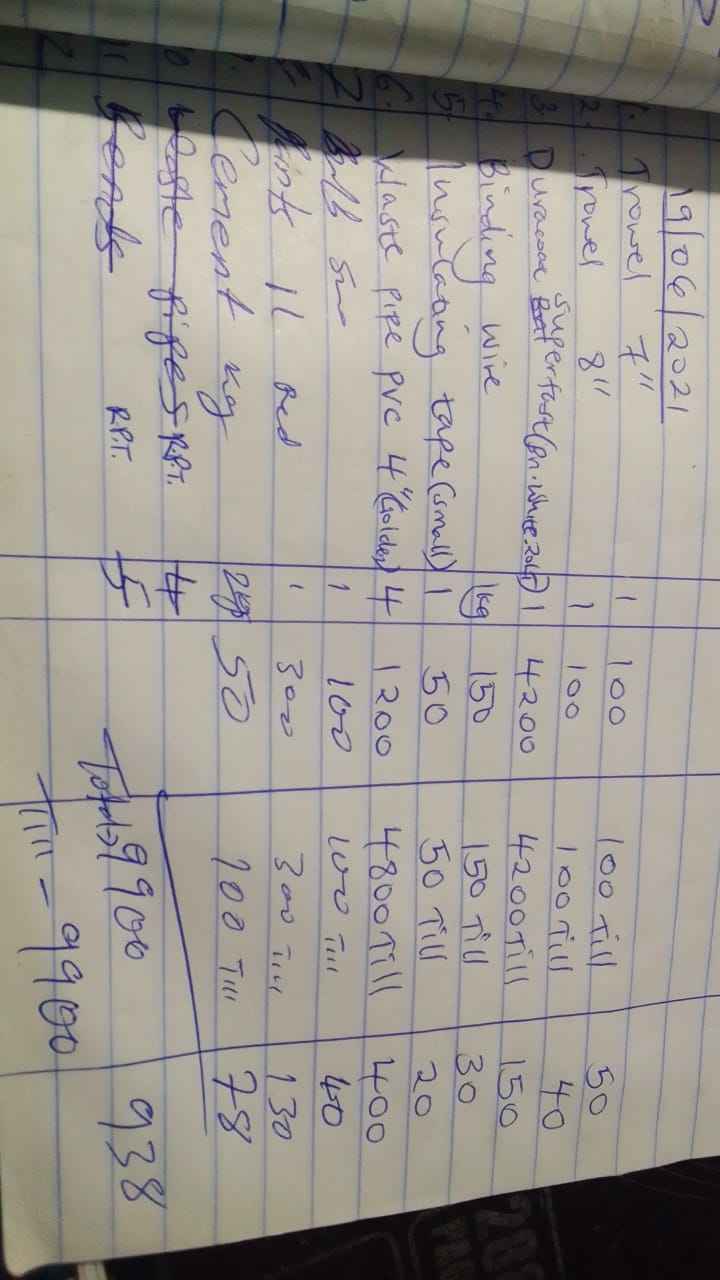 19/06/2021
1. Trowel 7" 1 100 100 Till 50
2. Trowel 8" 1 100 100 Till 40
3. Duracoat superfast (Bri. White 20Lt) 1 4200 4200 Till 150
4. Binding wire 1kg 150 150 Till 30
5. Insulating tape (small) 1 50 50 Till 20
6. Waste pipe PVC 4" (Golden) 4 1200 4800 Till 400
7 1 100 100 Till 40
1L Red 1 300 300 Till 130
Cement kg 2kgs 50 100 Till 78
10 Waste pipes R.P.T. 4
11 Bends R.P.T. 5
Total → 9900 938
Till - 9900